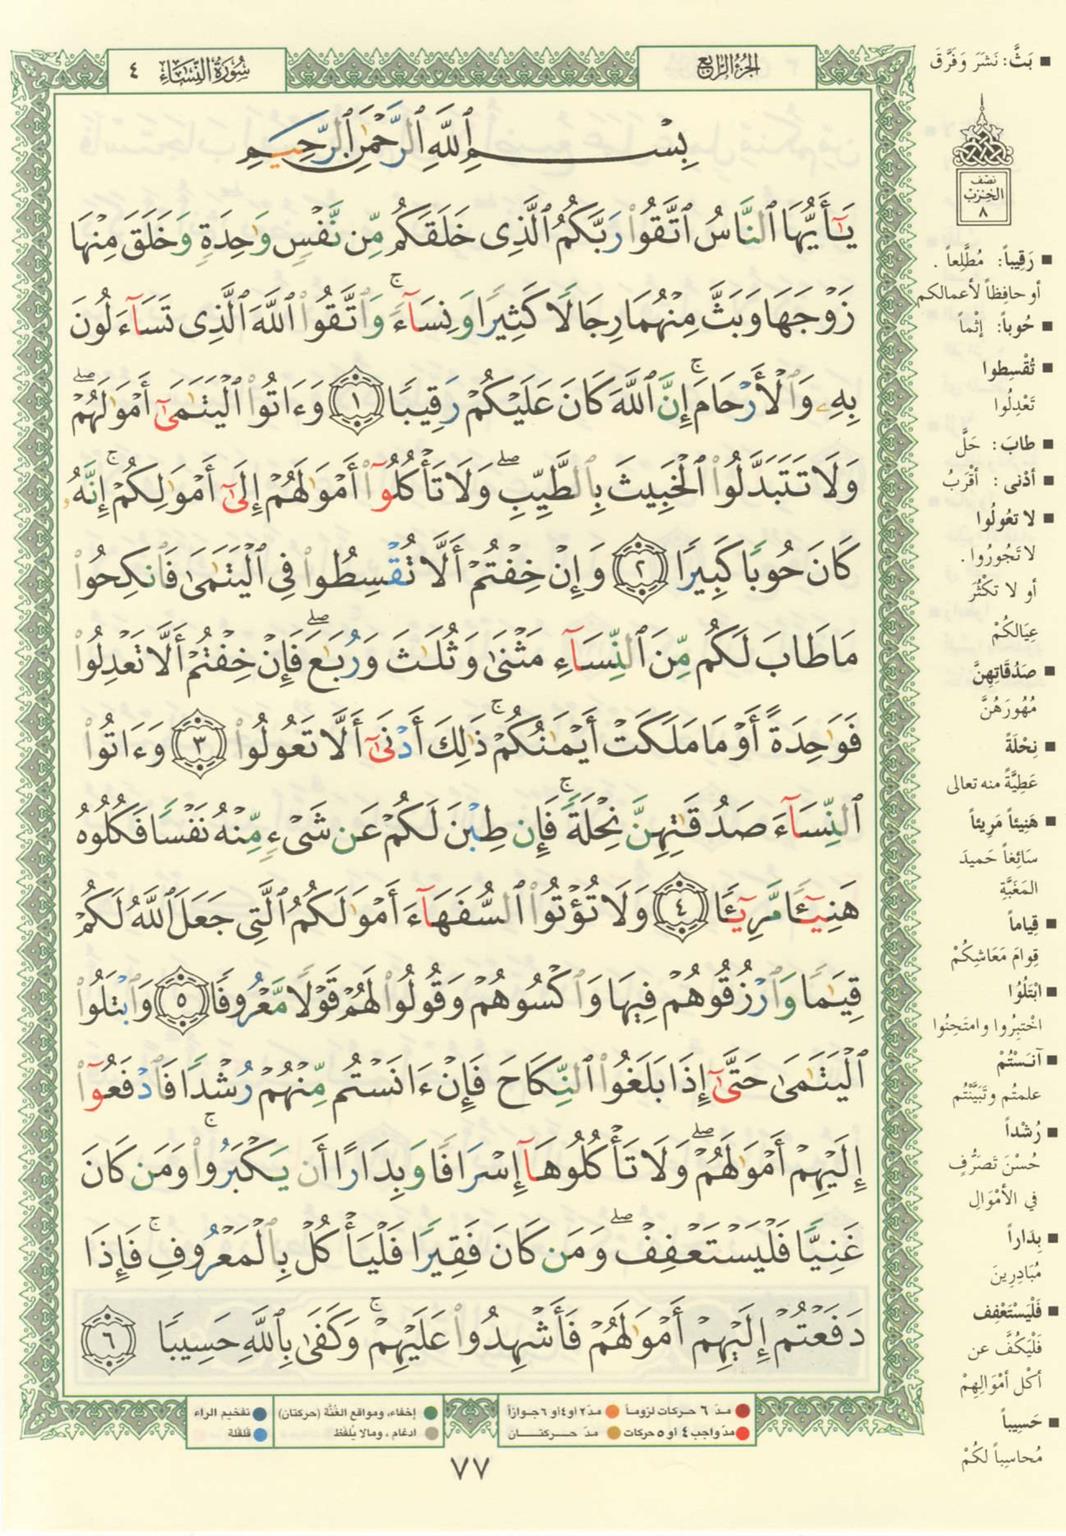 الجزء الرابع
سورة النساء ٤
بِسْمِ ٱللَّهِ ٱلرَّحْمَٰنِ ٱلرَّحِيمِ
يَٰٓأَيُّهَا ٱلنَّاسُ ٱتَّقُوا۟ رَبَّكُمُ ٱلَّذِى خَلَقَكُم مِّن نَّفْسٍ وَٰحِدَةٍ وَخَلَقَ مِنْهَا
زَوْجَهَا وَبَثَّ مِنْهُمَا رِجَالًا كَثِيرًا وَنِسَآءً ۚ وَٱتَّقُوا۟ ٱللَّهَ ٱلَّذِى تَسَآءَلُونَ
بِهِۦ وَٱلْأَرْحَامَ ۚ إِنَّ ٱللَّهَ كَانَ عَلَيْكُمْ رَقِيبًا ١ وَءَاتُوا۟ ٱلْيَتَٰمَىٰٓ أَمْوَٰلَهُمْ ۖ
وَلَا تَتَبَدَّلُوا۟ ٱلْخَبِيثَ بِٱلطَّيِّبِ ۖ وَلَا تَأْكُلُوٓا۟ أَمْوَٰلَهُمْ إِلَىٰٓ أَمْوَٰلِكُمْ ۚ إِنَّهُۥ
كَانَ حُوبًا كَبِيرًا ٢ وَإِنْ خِفْتُمْ أَلَّا تُقْسِطُوا۟ فِى ٱلْيَتَٰمَىٰ فَٱنكِحُوا۟
مَا طَابَ لَكُم مِّنَ ٱلنِّسَآءِ مَثْنَىٰ وَثُلَٰثَ وَرُبَٰعَ ۖ فَإِنْ خِفْتُمْ أَلَّا تَعْدِلُوا۟
فَوَٰحِدَةً أَوْ مَا مَلَكَتْ أَيْمَٰنُكُمْ ۚ ذَٰلِكَ أَدْنَىٰٓ أَلَّا تَعُولُوا۟ ٣ وَءَاتُوا۟
ٱلنِّسَآءَ صَدُقَٰتِهِنَّ نِحْلَةً ۚ فَإِن طِبْنَ لَكُمْ عَن شَىْءٍ مِّنْهُ نَفْسًا فَكُلُوهُ
هَنِيٓـًٔا مَّرِيٓـًٔا ٤ وَلَا تُؤْتُوا۟ ٱلسُّفَهَآءَ أَمْوَٰلَكُمُ ٱلَّتِى جَعَلَ ٱللَّهُ لَكُمْ
قِيَٰمًا وَٱرْزُقُوهُمْ فِيهَا وَٱكْسُوهُمْ وَقُولُوا۟ لَهُمْ قَوْلًا مَّعْرُوفًا ٥ وَٱبْتَلُوا۟
ٱلْيَتَٰمَىٰ حَتَّىٰٓ إِذَا بَلَغُوا۟ ٱلنِّكَاحَ فَإِنْ ءَانَسْتُم مِّنْهُمْ رُشْدًا فَٱدْفَعُوٓا۟
إِلَيْهِمْ أَمْوَٰلَهُمْ ۖ وَلَا تَأْكُلُوهَآ إِسْرَافًا وَبِدَارًا أَن يَكْبَرُوا۟ ۚ وَمَن كَانَ
غَنِيًّا فَلْيَسْتَعْفِفْ ۖ وَمَن كَانَ فَقِيرًا فَلْيَأْكُلْ بِٱلْمَعْرُوفِ ۚ فَإِذَا
دَفَعْتُمْ إِلَيْهِمْ أَمْوَٰلَهُمْ فَأَشْهِدُوا۟ عَلَيْهِمْ ۚ وَكَفَىٰ بِٱللَّهِ حَسِيبًا ٦
■ بَثَّ: نَشَرَ وَفَرَّقَ
نصف
الحزب
٨
■ رَقِيباً: مُطَّلِعاً .
أو حافِظاً لأعمالكم
■ حُوباً: إثْماً
■ تُقْسِطوا
تَعْدِلُوا
■ طابَ: حَلَّ
■ أدْنى: أقْرَبُ
■ لا تعُولُوا
لا تَجُورُوا.
أو لا تكْثُرَ
عِيَالكُمْ
■ صَدُقَاتِهِنَّ
مُهُورَهُنَّ
■ نِحْلَةً
عَطِيَّةً منه تعالى
■ هَنِيئاً مَرِيئاً
سَائِغاً حَميدَ
المَغَبَّةِ
■ قِياماً
قِوامَ مَعَاشِكُمْ
■ ابْتَلُوا
اخْتبِرُوا وامتَحِنُوا
■ آنَسْتُمْ
علمتُم وتَبَيَّنْتُم
■ رُشْداً
حُسْنَ تَصَرُّفٍ
في الأمْوَالِ
■ بِدَاراً
مُبَادِرِينَ
■ فَلْيَسْتَعْفِف
فَلْيَكُفَّ عن
أكْل أمْوَالِهِمْ
■ حَسِيباً
مُحاسِباً لكُمْ
مدّ ٦ حركات لزوماً مدّ ٢ او ٤ او ٦ جوازاً
مدّ واجب ٤ او ٥ حركات مدّ حركتان
إخفاء، ومواقع الغُنَّة (حركتان)
ادغام، ومالا يُلفَظ
تفخيم الراء
قلقلة
٧٧